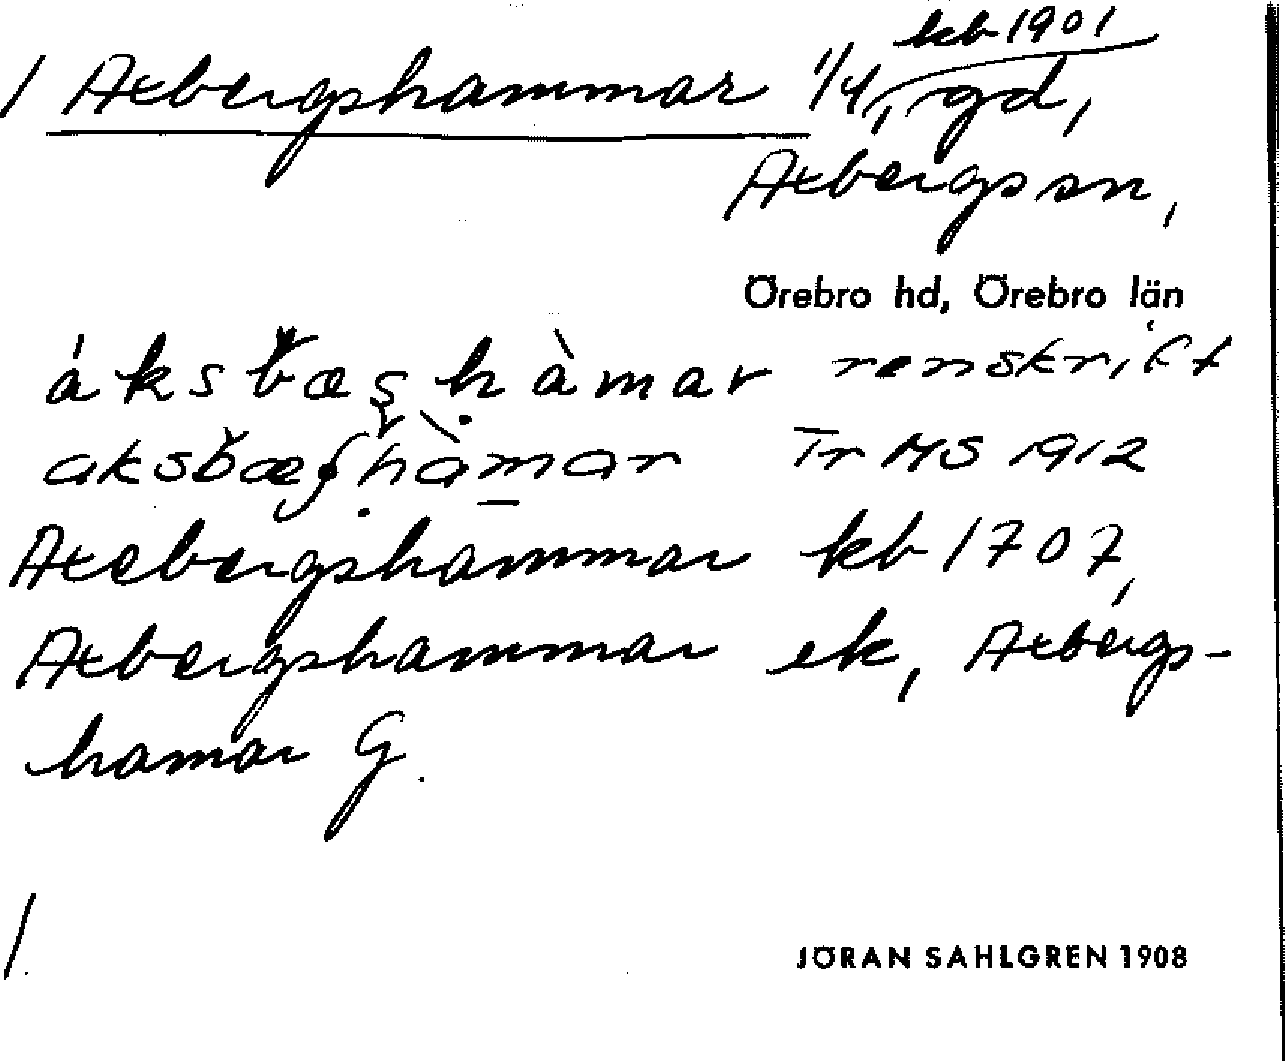 kb 1901
/ Axbergshammar 1/4, gd,
Axbergs sn,
Örebro hd, Örebro län
áksbæʂhàmar renskrift
aksbæʂhàmar Tr MS 1912
Axebergshammar kb 1707,
Axbergshammar ek, Axbergs-
hamar G.
/
JÖRAN SAHLGREN 1908